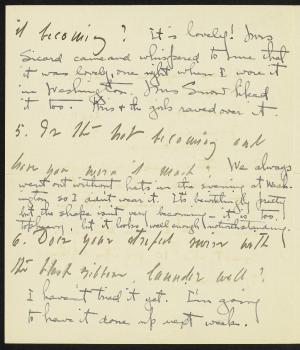 it becoming? It is lovely! Mrs
Sicard came and whispered to me that
it was lovely, one night when I wore it
in Washington. Miss Snow liked
it too. Kris & the girls raved over it.
5. Is the hat becoming and
have you worn it much? We always
went out without hats in the evening at Wash-
ington so I didn't wear it. Its beautifully pretty
but the shape isn't very becoming - it is too
top heavy, but it looks well enough notwithstanding.
6. Does your striped muslin with
the black ribbon launder well?
I haven't tried it yet. I'm going
to have it done up next week.